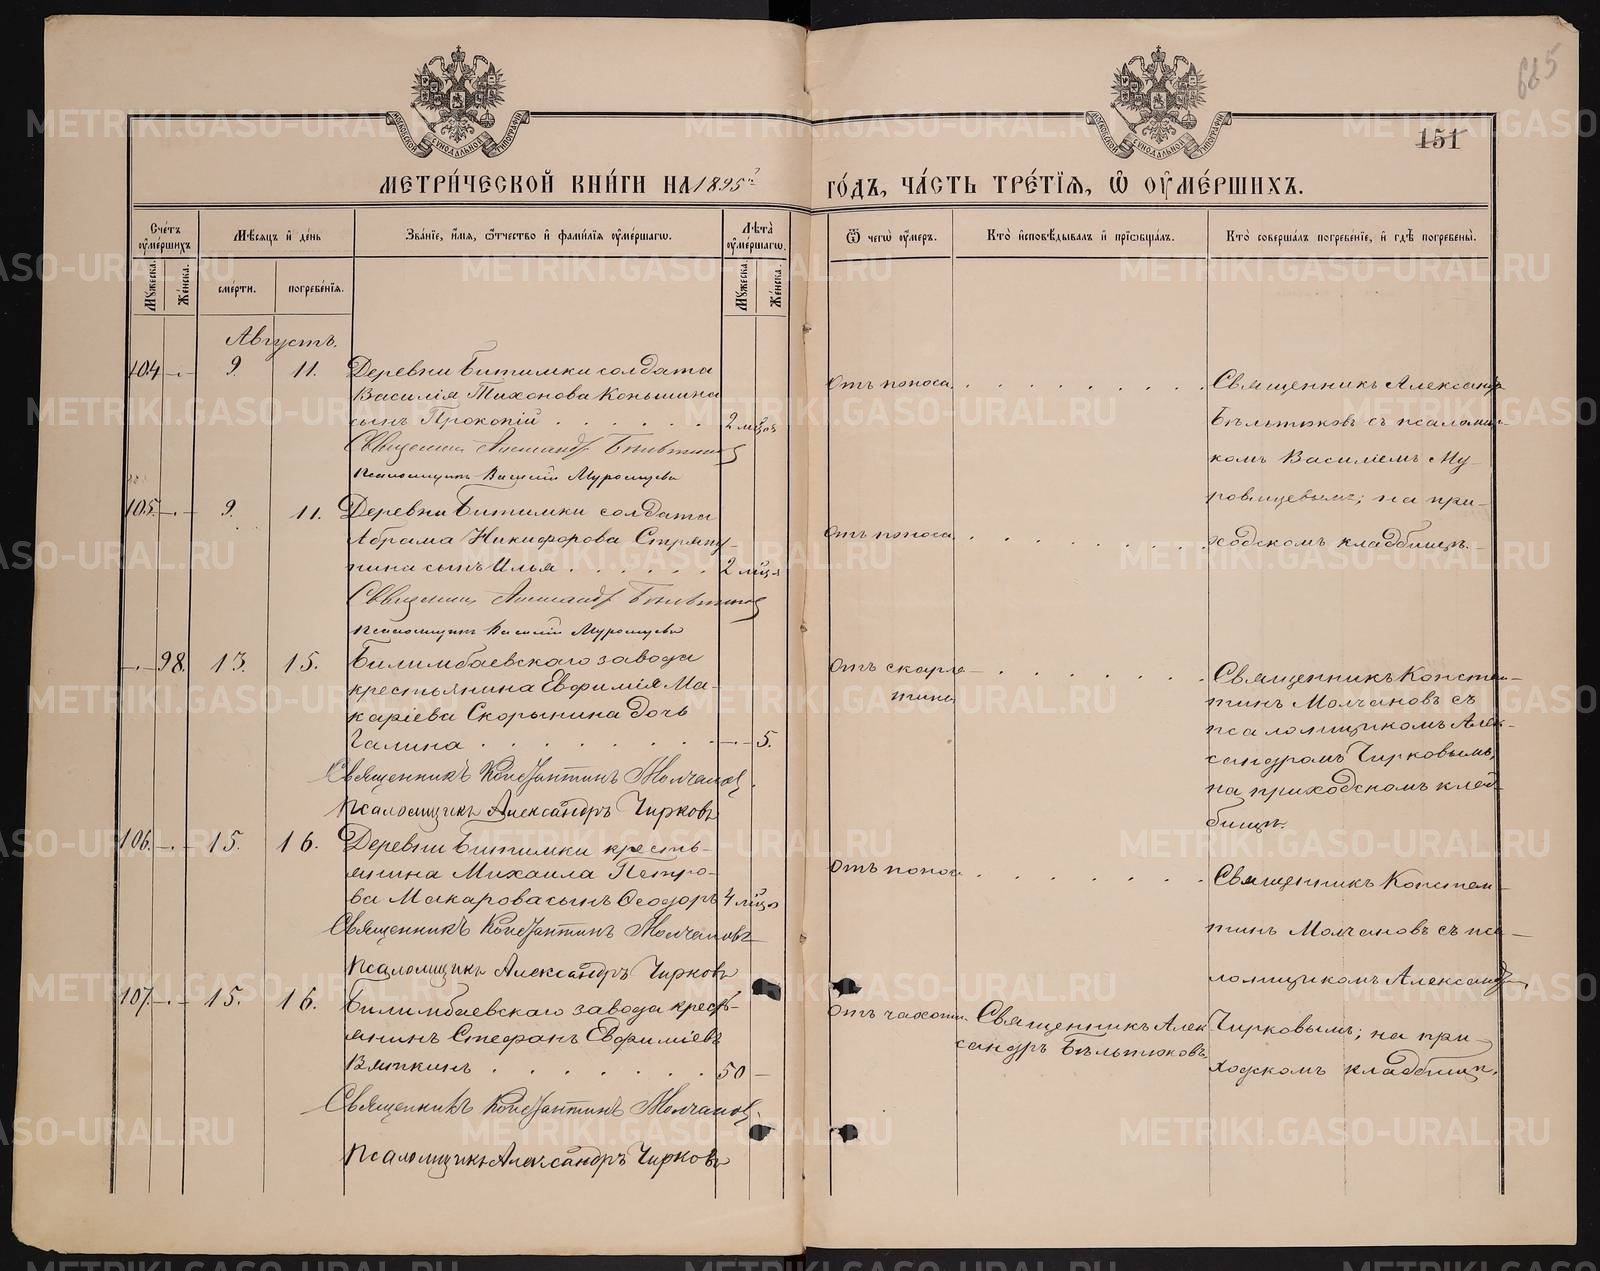 665
151
МОСКОВСКОЙ СѴНОДАЛЬНОЙ ТИПОГРАФІИ
МОСКОВСКОЙ СѴНОДАЛЬНОЙ ТИПОГРАФІИ
МЕТРИ́ЧЕСКОЙ КНИ́ГИ НА 1895й
ГО́ДЪ, ЧА́СТЬ ТРЕ́ТІѦ, Ѽ ОУ҆МЕ́РШИХЪ.
Сче́тъ оу҆ме́ршихъ
Мѣсѧцъ и҆ де́нь
Зва́нїе, и҆́мѧ, ѻ҆́тчество и҆ фами́лїѧ оу҆ме́ршагѡ.
Лѣ́та оу҆ме́ршагѡ.
Ѿ чегѡ̀ оу҆́меръ.
Кто̀ и҆сповѣ́дывалъ и҆ прїѡбща́лъ.
Кто̀ соверша́лъ погребе́нїе, и҆ гдѣ̀ погребены̀.
Мꙋжеска.
Же́нска.
сме́рти.
погребе́нїѧ.
Мꙋжеска.
Же́нска.
Августъ.
104 -.- 9. 11. Деревни Битимки солдата
Василія Тихонова Коньшина
сынъ Прокопій . . . . . . 2 мѣс.
Священникъ Александръ Бѣльтюковъ
Псаломщикъ Василій Муромцевъ
Отъ поноса.
Священникъ Александръ
Бѣльтюковъ съ псаломщи-
комъ Василіемъ Му-
ромцевымъ; на при-
ходскомъ кладбищѣ.
105. -.- 9. 11. Деревни Битимки солдата
Абрама Никифорова Стряпу-
нина сынъ Илья . . . . . . 2 мѣс.
Священникъ Александръ Бѣльтюковъ
Псаломщикъ Василій Муромцевъ
Отъ поноса
-.- 98. 13. 15. Билимбаевскаго завода
крестьянина Евфимія Ма-
каріева Скорынина дочь
Галина . . . . . . . . -.- 5.
Священникъ Константинъ Молчановъ.
Псаломщикъ Александръ Чирковъ
Отъ скарла-
тины
Священникъ Констан-
тинъ Молчановъ съ
псаломщикомъ Алек-
сандромъ Чирковымъ,
на приходскомъ клад-
бищѣ.
106. -.- 15. 16. Деревни Битимки кресть-
янина Михаила Петро-
ва Макарова сынъ Ѳеодоръ 4 мѣс.
Священникъ Константинъ Молчановъ
Псаломщикъ Александръ Чирковъ
Отъ поноса
Священникъ Констан-
тинъ Молчановъ съ пса-
ломщикомъ Александр.
Чирковымъ; на при-
ходскомъ кладбищѣ.
107. -.- 15. 16. Билимбаевскаго завода кресть-
янинъ Стефанъ Евфиміевъ
Вяткинъ . . . . . . . 50 -
Священникъ Константинъ Молчановъ.
Псаломщикъ Александръ Чирковъ
Отъ чахотки.
Священникъ Алек
сандръ Бѣльтюковъ
METRIKI.GASO-URAL.RU